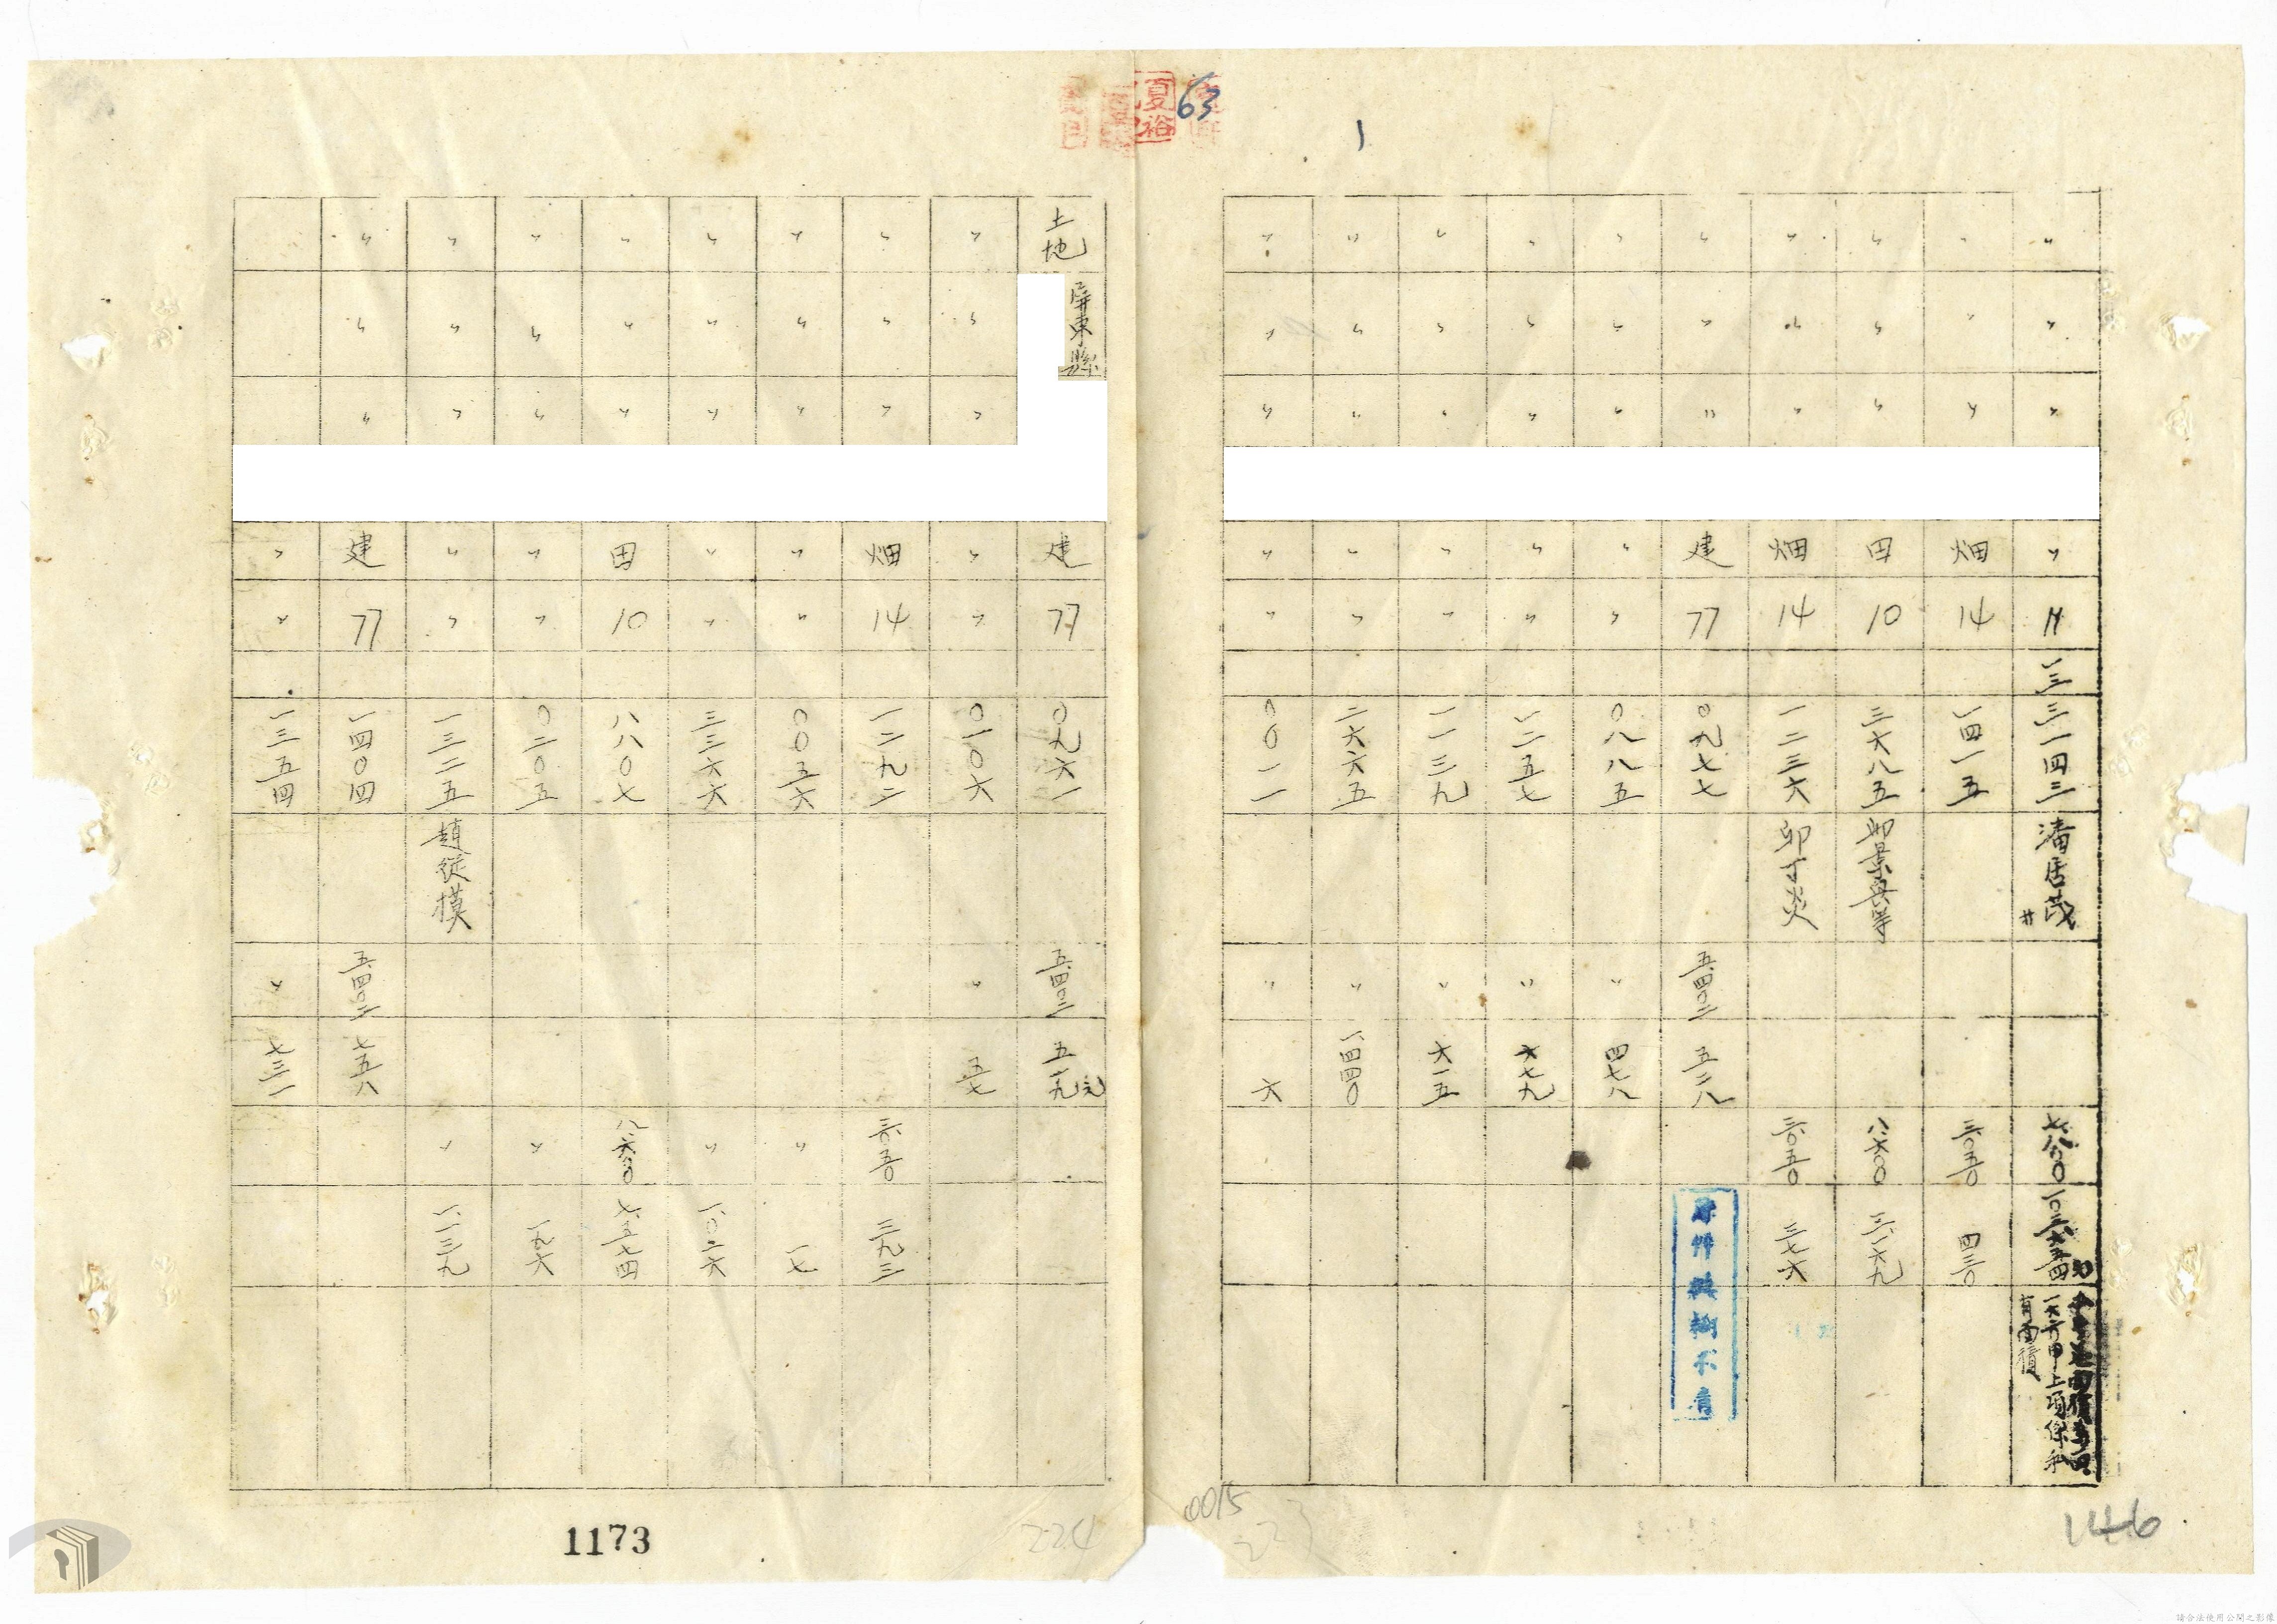 夏裕
63
1
〃 〃 〃 〃 一三 三一四三 潘居茂 七八〇〇
一六六甲上項係私
有面積
〃 〃 〃 畑 14 一四一五 三〇五〇 四三〇
〃 〃 〃 田 10 三六八五 八六〇〇 三一六九
〃 〃 〃 畑 14 一二三六 三〇五〇 三七六
〃 〃 〃 建 77 〇九七七 五四〇二 五二八
〃 〃 〃 〃 〃 〇八八五 〃 四七八
〃 〃 〃 〃 〃 一二五七 〃 六七九
〃 〃 〃 〃 〃 一一三九 〃 六一五
〃 〃 〃 〃 〃 二六六五 〃 一、四四〇
〃 〃 〃 〃 〃 〇〇一一 〃 六
原件模糊不清
146
0015
223
土地 屏東縣 建 77 〇九六一 五四〇二 五一九元
〃 〃 〃 〃 〃 〇一〇六 〃 五七
〃 〃 〃 畑 14 一二九二 三〇五〇 三九三
〃 〃 〃 〃 〃 〇〇五六 〃 一七
〃 〃 〃 〃 〃 三三六六 〃 一、〇二六
〃 〃 〃 田 10 八八〇七 八六〇〇 七五七四
〃 〃 〃 〃 〃 〇二〇五 〃 一九六
〃 〃 〃 〃 〃 一三二五 趙從模 〃 一、一三九
〃 〃 〃 建 77 一四〇四 五四〇二 七五八
〃 〃 一三五四 〃 七三一
1173
224
請合法使用公開之影像